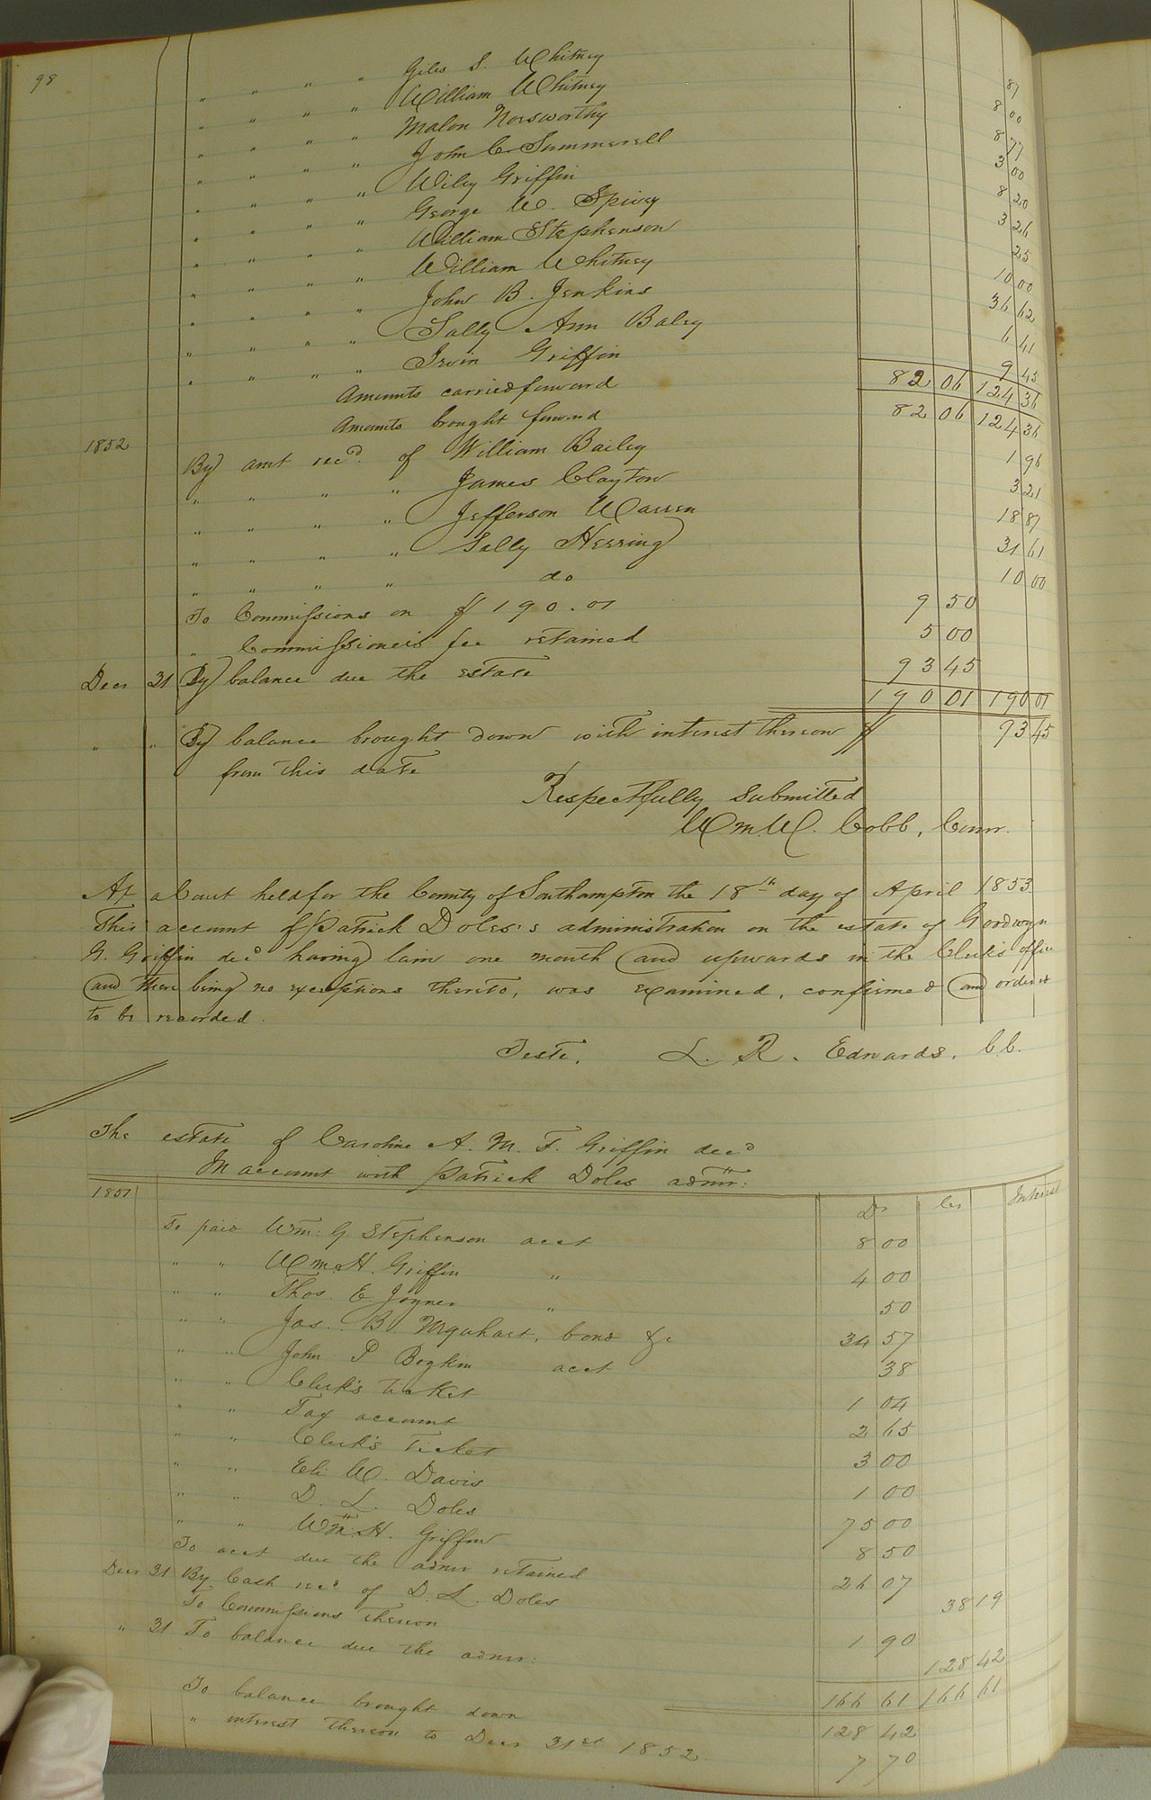 98
" " " " Giles S. Whitney 87
" " " " William Whitney 8 00
" " " " Malon Norsworthy 8 77
" " " " John C. Summerell 3 00
" " " " Wiley Griffin 8 20
" " " " George W. Spivey 3 26
" " " " William Stephenson 25
" " " " William Whitney 10 00
" " " " John B. Jenkins 36 62
" " " " Sally Ann Baley 6 41
" " " " Irvin Griffin 9 45
Amounts carried forward 82 06 124 36
Amounts brought forward 82 06 124 36
1852 By amt recd. of William Bailey 1 96
" " " " James Clayton 3 21
" " " " Jefferson Warren 18 87
" " " " Sally Herring 31 61
" " " " do 10 00
To Commissions on $190.01 9 50
" Commissioner's fee retained 5 00
Decr 31 By balance due the estate 93 45
190 01 190 01
" " By balance brought down with interest thereon $ 93 45
from this date
Respectfully submitted
Wm W. Cobb, Comr.
At a Court held for the County of Southampton the 18th day of April 1853
This account of Patrick Doles's administration on the estate of Goodwyn
G. Griffin decd having lain one month and upwards in the Clerk's office
and there being no exceptions thereto, was examined, confirmed and ordered
to be recorded.
Teste, L. R. Edwards, CC.
The estate of Caroline A. M. F. Griffin decd
In account with Patrick Doles admr:
1851 Dr Cr Interest
To paid Wm. G Stephenson acct 8 00
" " Wm H. Griffin " 4 00
" " Thos. E Joyner " 50
" " Jas. B. Urquhart, bond &c 34 57
" " John P Boykin acct 38
" " Clerk's ticket 1 04
" " Tax account 2 65
" " Clerk's Ticket 3 00
" " Eli W. Davis 1 00
" " D. L. Doles 75 00
" " Wm H. Griffin 8 50
To acct due the admr retained 26 07
Decr 31 By Cash recd of D. L. Doles 38 19
To Commissions thereon 1 90
" 31 To balance due the admr: 128 42
166 61 166 61
To balance brought down 128 42
" interest thereon to Decr 31st 1852 7 70